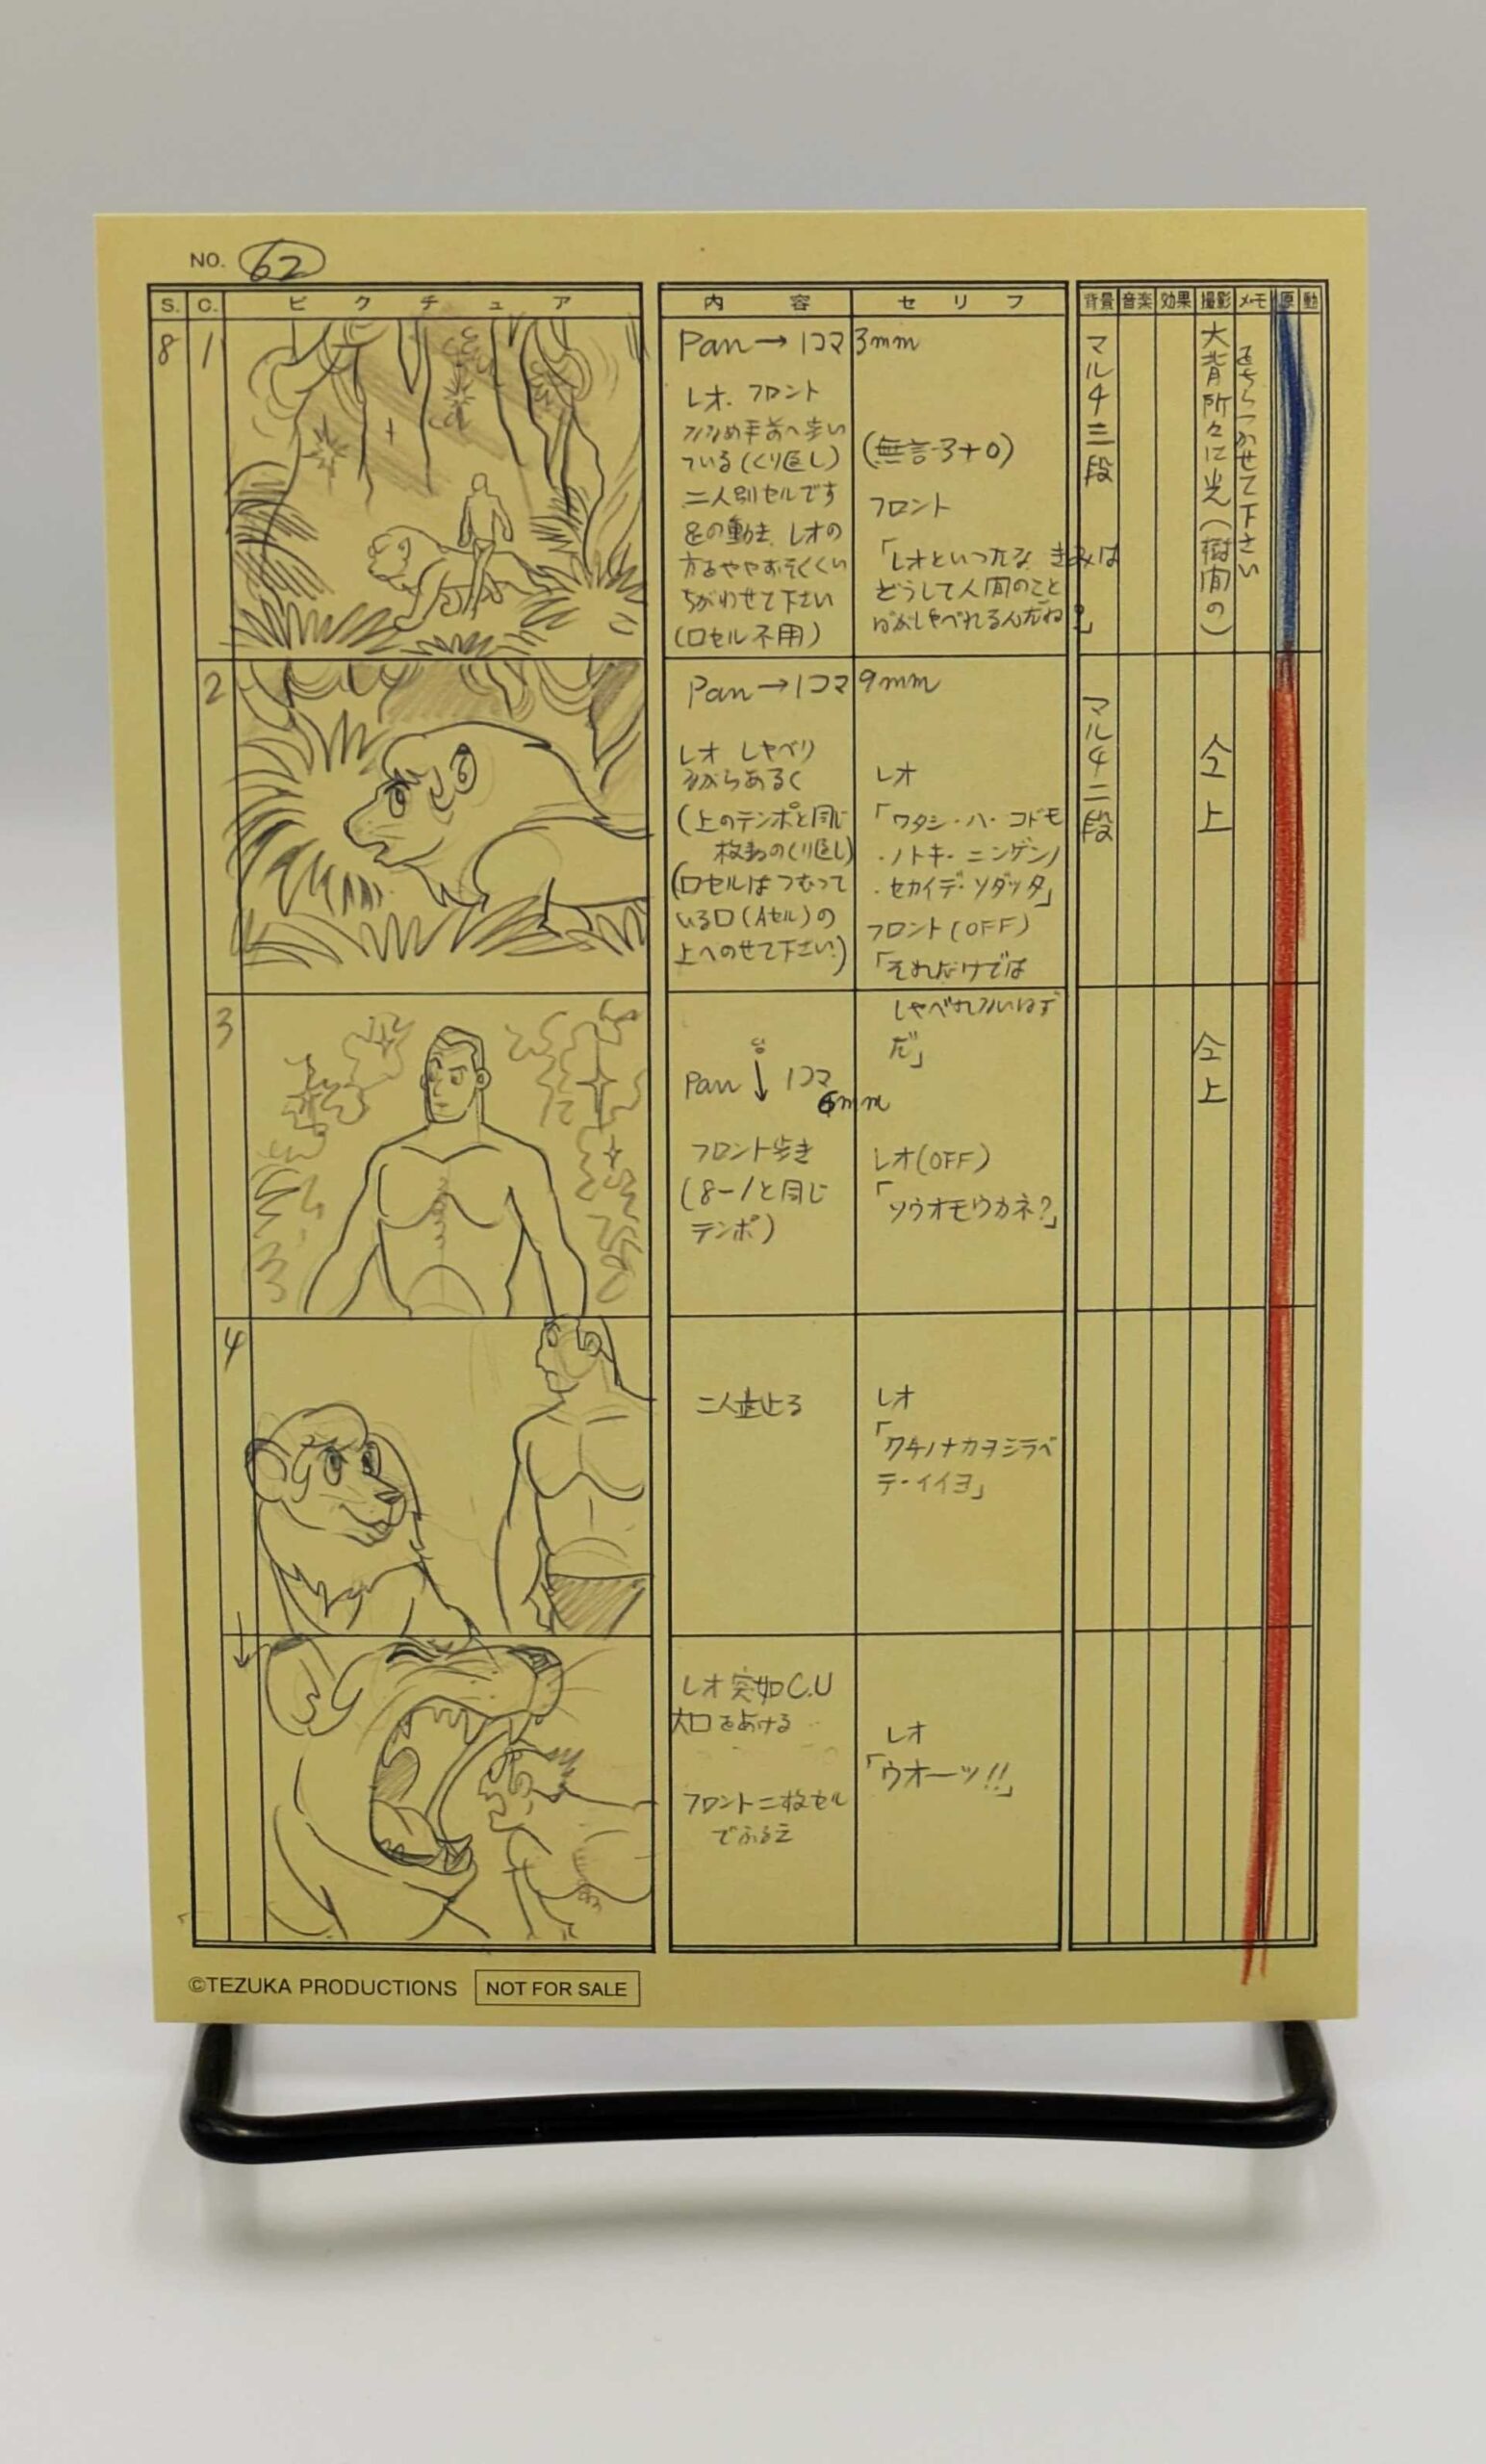 NO. 62
S. C. ピクチュア 内容 セリフ 背景 音楽 効果 撮影 メモ 原 動
8 1
Pan→1コマ3mm
レオ. フロント
ななめ手前へ歩い
ている(くり返し)
二人別セルです
足の動き、レオの
方をややおそくくい
ちがわせて下さい
(口セル不用)
(無言3+0)
フロント
「レオといったな きみは
どうして人間のこと
ばがしゃべれるんだね?」
マルチ三段
大背所々に光(樹間の)
ちらつかせて下さい
2
Pan→1コマ9mm
レオ しゃべり
ながらあるく
(上のテンポと同じ
枚数のくり返し)
(口セルはつむって
いる口(Aセル)の
上へのせて下さい)
レオ
「ワタシ・ハ・コドモ
・ノトキ・ニンゲンノ
・セカイデ・ソダッタ」
フロント(OFF)
「それだけでは
しゃべれないはず
だ」
マルチ二段
仝上
3
Pan ↓ 1コマ
6mm
フロント歩き
(8-1と同じ
テンポ)
レオ(OFF)
「ソウオモウカネ?」
仝上
4
二人立止る
レオ
「クチノナカヲシラベ
テ・イイヨ」
レオ突如C.U
大口をあける
フロント二枚セル
でふるえ
レオ
「ウオーッ!!」
©TEZUKA PRODUCTIONS NOT FOR SALE